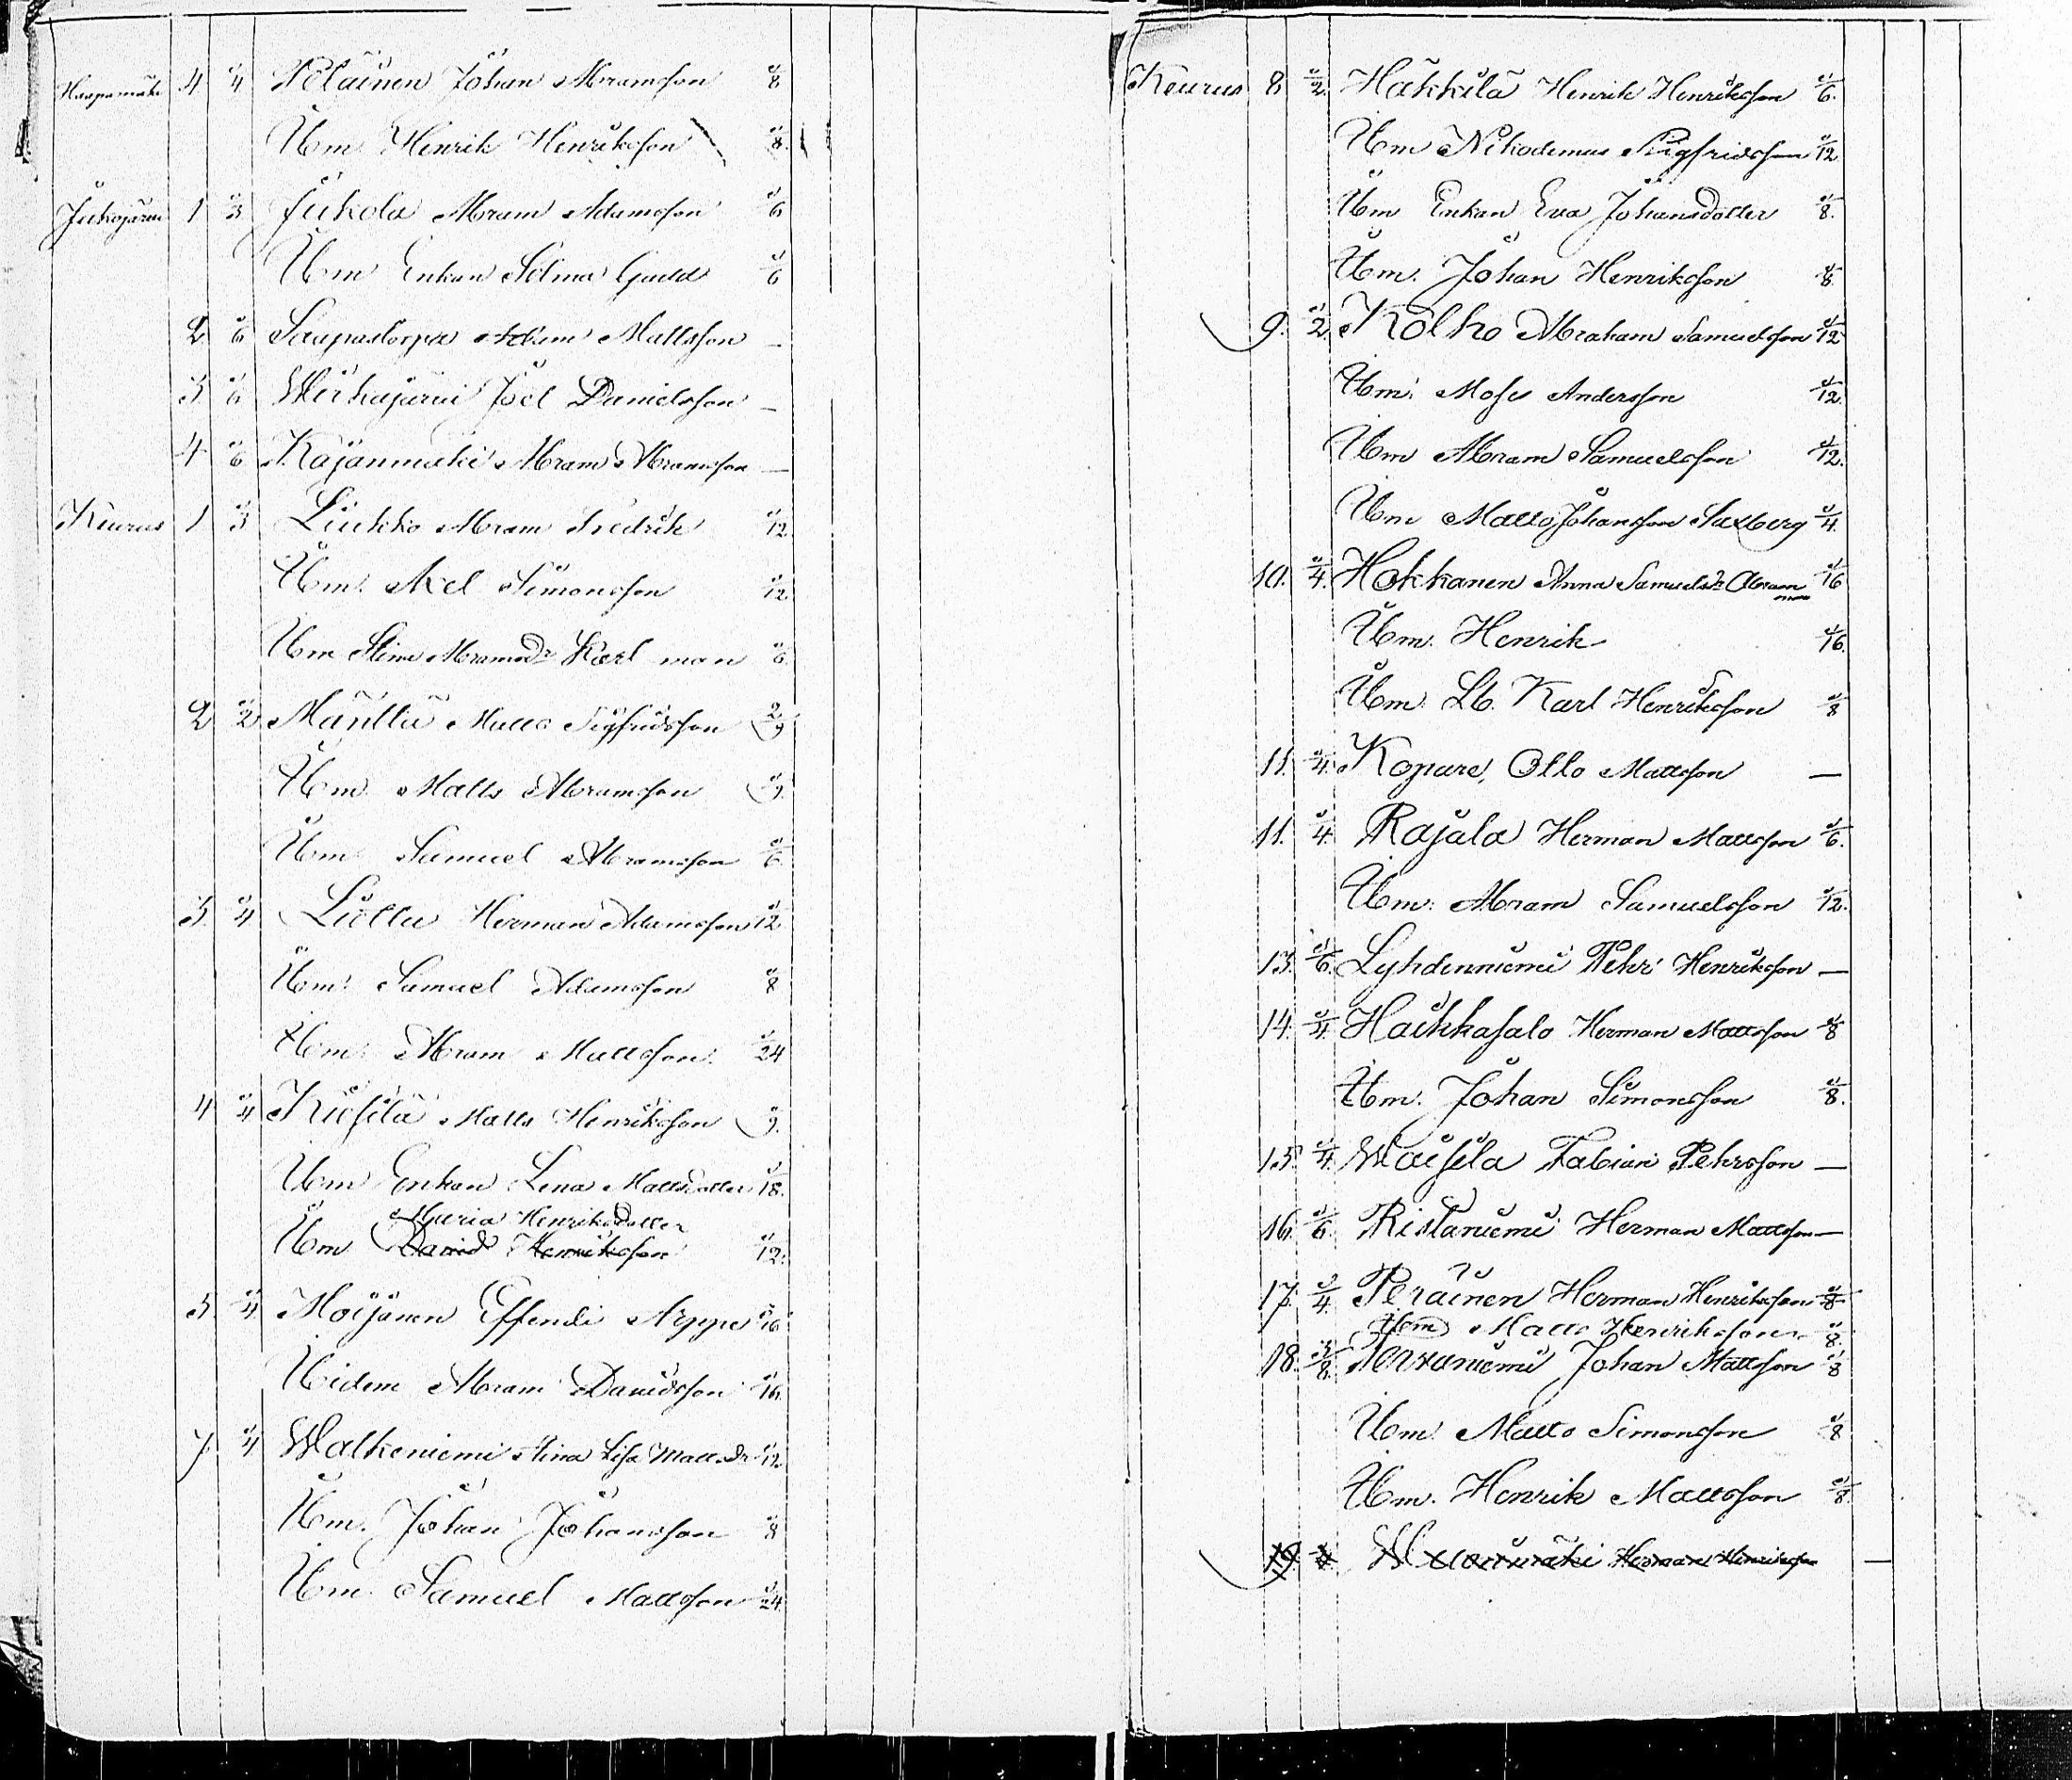 Haapamäki 4 1/4 Pöläinen Johan Abramsson 1/8
Ibm Henrik Henriksson 1/8
Jukojärvi 1 1/3 Jukola Abram Adamsson 1/6
Ibm Enkan Selma Gadd 1/6
2 1/6 Adam Mattsson —
3 1/6 Wirkajärvi Joel Danielsson —
4 1/6 Kajanmäki Abram Abramsson —
Keurus 1 1/3 Liukko Abram Fredrik 1/12
Ibm. Axel Simonsson 1/12
Ibm Stina Abramsdr Karl man 1/6
2 1/2 Mänttä Matts Sigfridsson 2/9
Ibm Matts Abramsson 1/9
Ibm Samuel Abramsson 1/6
3 1/4 Herman Adamsson 1/12
Ibm. Samuel Adamsson 1/8
Ibm. Abram Mattsson 1/24
4 1/4 Matts Henriksson 1/9
Ibm Enkan Lena Mattsdotter 1/18
Maria Henriksdotter
Ibm David Henriksson 1/12
5 1/4 Moijanen Effendi Arppe 3/16
Ibidem Abram Davidsson 1/16
7 1/4 Walkeniemi Stina Lisa Mattsdr 1/12
Ibm. Johan Johansson 1/8
Ibm. Samuel Mattsson 1/24
Keurus 8 1/2 Häkkilä Henrik Henriksson 1/6
Ibm Nikodemus Sigfridsson 1/12
Ibm Enkan Eva Johansdotter 1/8
Ibm. Johan Henriksson 1/8
9. 1/2 Kolho Abraham Samuelsson 1/12
Ibm. Moses Andersson 1/12
Ibm Abram Samuelsson 1/12
Ibm Matts Johansson Saxberg 1/4
10. 1/4 Hokkanen Anna Samuelsdr Abram 1/16
Ibm. Henrik 1/16
Ibm. Lb. Karl Henriksson 1/8
11. 1/4 Kopare, Otto Mattsson —
11. 1/4 Rajala Herman Mattsson 1/6
Ibm. Abram Samuelsson 1/12
13. 1/6 Lyhdenniemi Pehr Henriksson —
14. 1/4 Haikkasalo Herman Mattsson 1/8
Ibm. Johan Simonsson 1/8
15. 1/4 Waissila Fabian Pehrsson —
16. 1/6 Ristaniemi Herman Mattsson —
17. 3/4 Peräinen Herman Henriksson 3/8
Ibm Matts Henriksson 3/8
18. 3/8 Tervaniemi Johan Mattsson 1/8
Ibm. Matts Simonsson 1/8
Ibm. Henrik Mattsson 1/8
19. 1/4 Herman Henriksson —